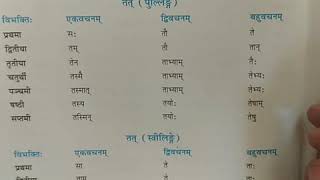 तत् (पुल्लिङ्गे)
विभक्तिः एकवचनम् द्विवचनम् बहुवचनम्
प्रथमा सः तौ ते
द्वितीया तम् तौ तान्
तृतीया तेन ताभ्याम् तैः
चतुर्थी तस्मै ताभ्याम् तेभ्यः
पञ्चमी तस्मात् ताभ्याम् तेभ्यः
षष्ठी तस्य तयोः तेषाम्
सप्तमी तस्मिन् तयोः तेषु
तत् (स्त्रीलिङ्गे)
विभक्तिः एकवचनम् द्विवचनम् बहुवचनम्
प्रथमा सा ते ताः
द्वितीया ताम् ते ताः